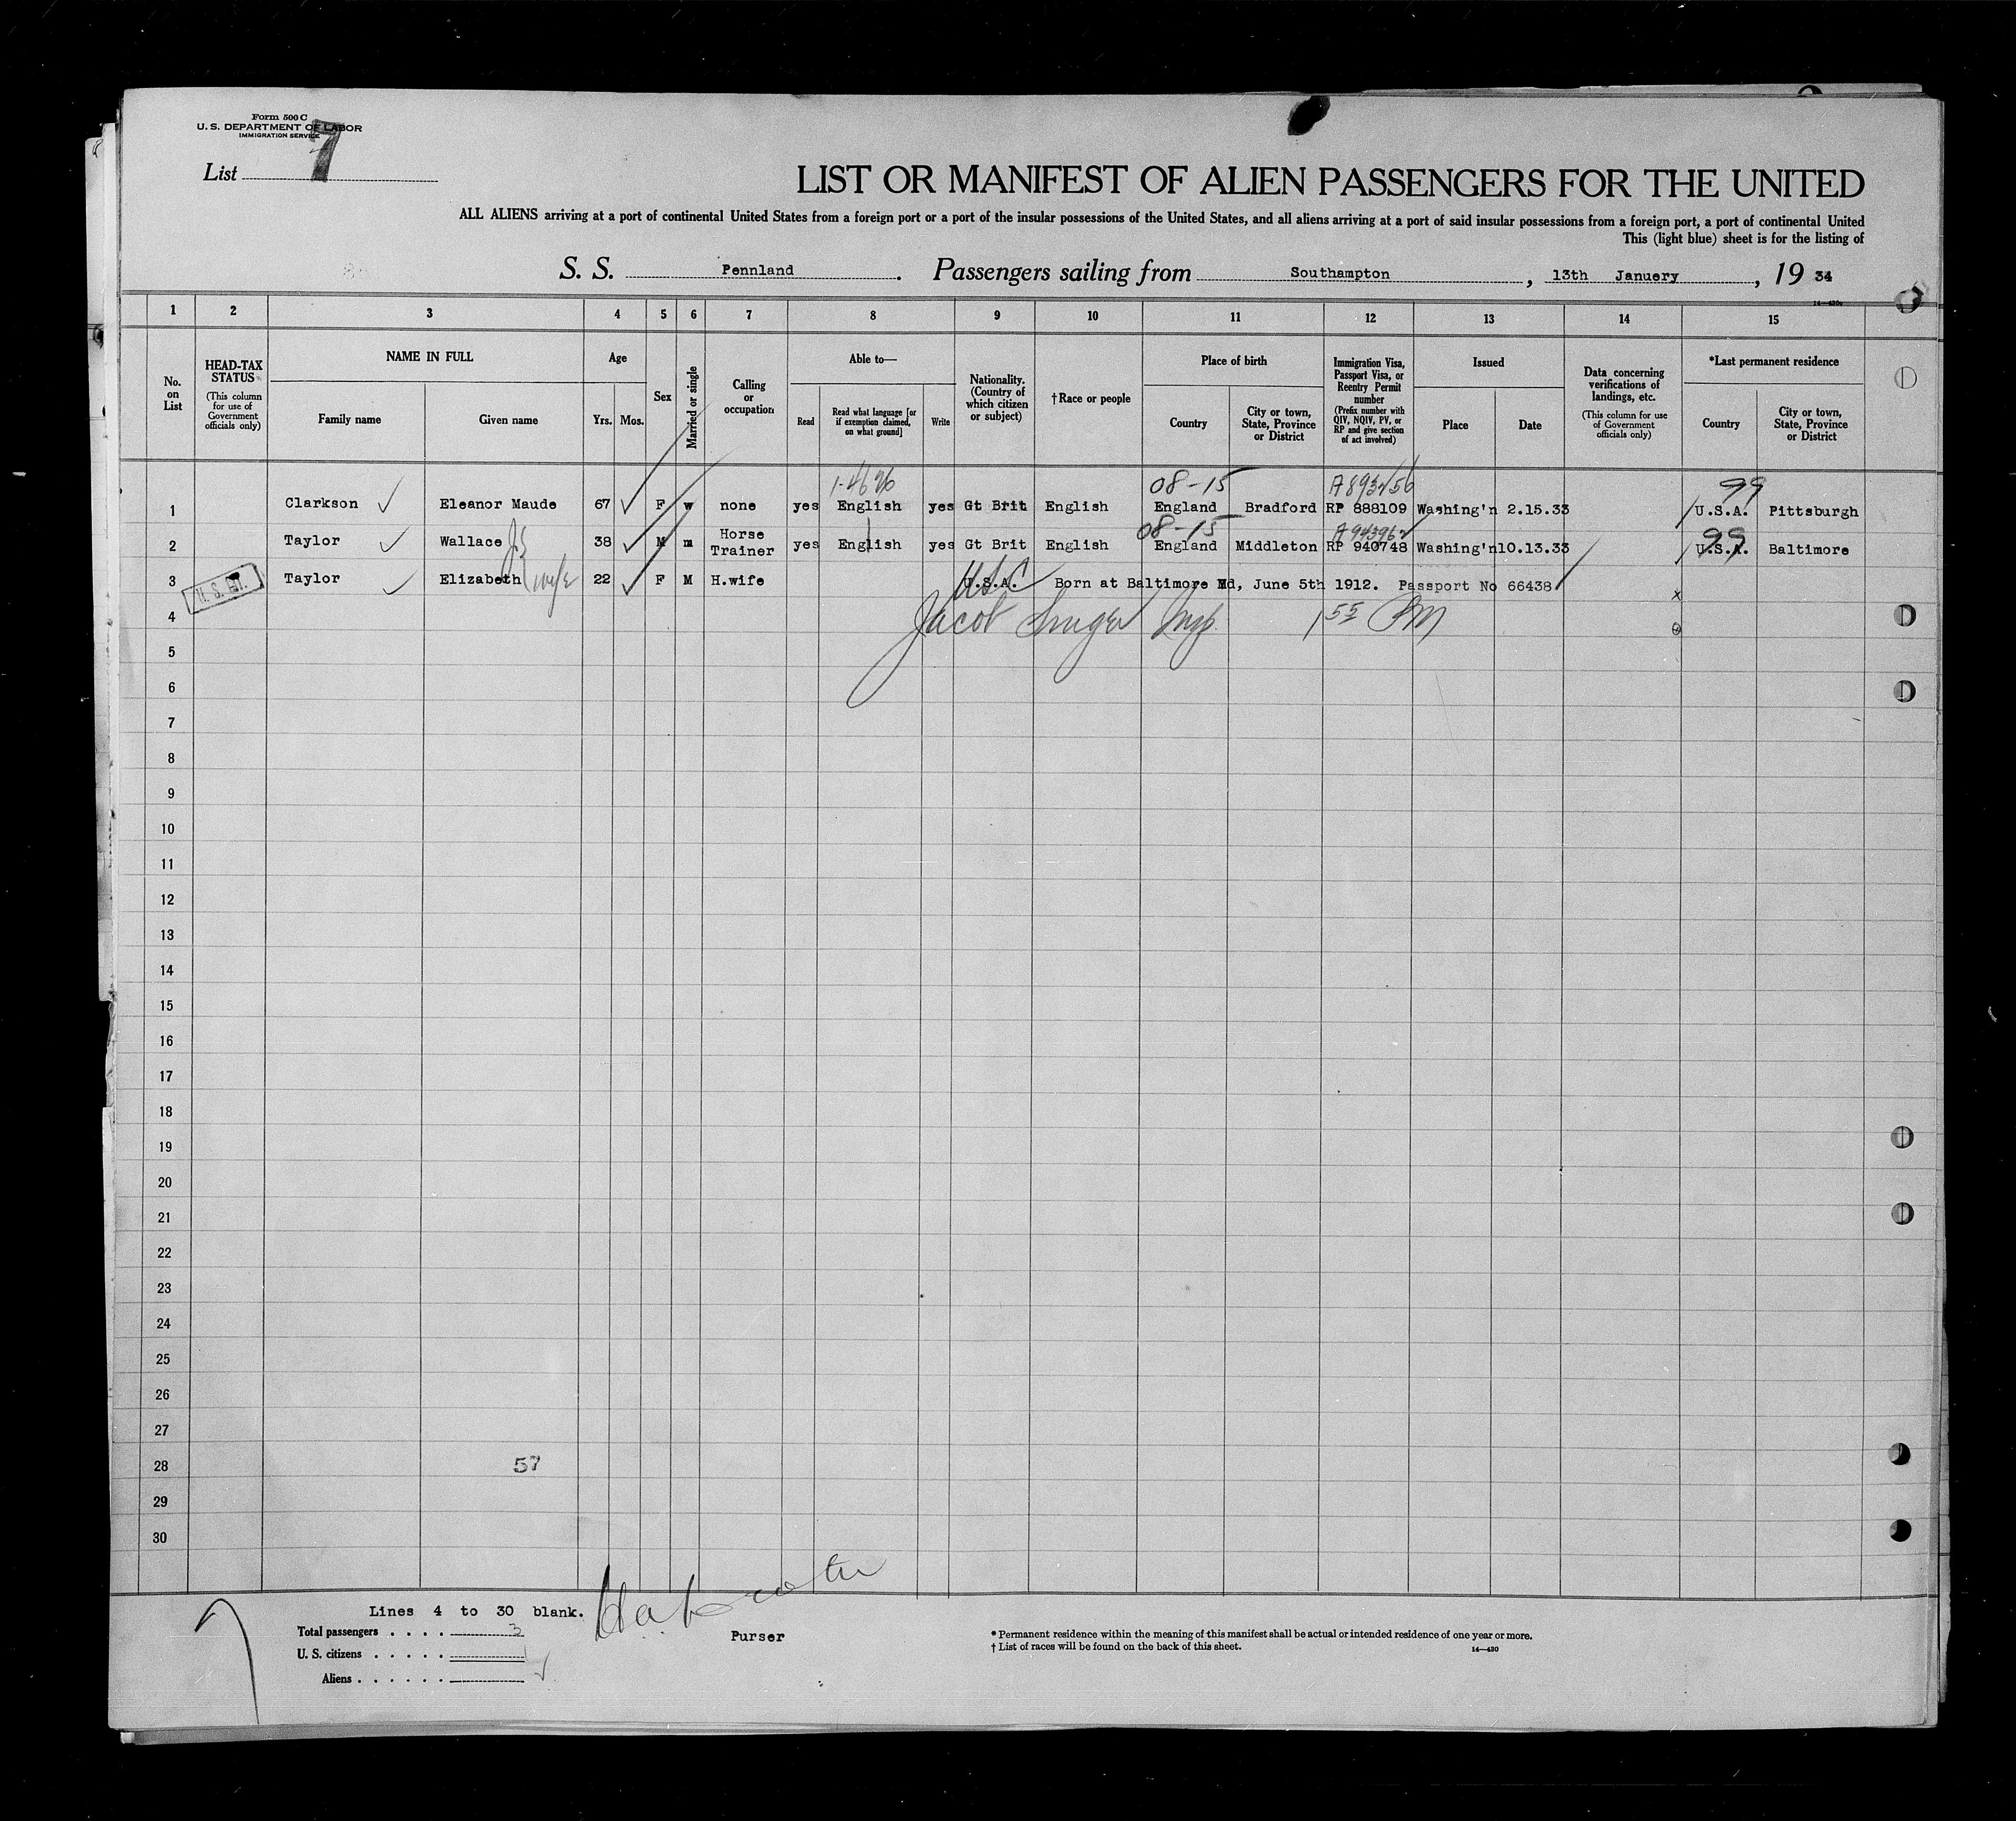 Form 500 C
U. S. DEPARTMENT OF LABOR
IMMIGRATION SERVICE
List 7
LIST OR MANIFEST OF ALIEN PASSENGERS FOR THE UNITED
ALL ALIENS arriving at a port of continental United States from a foreign port or a port of the insular possessions of the United States, and all aliens arriving at a port of said insular possessions from a foreign port, a port of continental United
This (light blue) sheet is for the listing of
S. S. Pennland. Passengers sailing from Southampton, 13th Januery, 19 34
1 2 3 4 5 6 7 8 9 10 11 12 13 14 15
No. on List
HEAD-TAX STATUS (This column for use of Government officials only)
NAME IN FULL
Family name
Given name
Age
Yrs.
Mos.
Sex
Married or single
Calling or occupation
Able to—
Read
Read what language [or if exemption claimed, on what ground]
Write
Nationality. (Country of which citizen or subject)
†Race or people
Place of birth
Country
City or town, State, Province or District
Immigration Visa, Passport Visa, or Reentry Permit number (Prefix number with QIV, NQIV, PV, or RP and give section of act involved)
Issued
Place
Date
Data concerning verifications of landings, etc. (This column for use of Government officials only)
*Last permanent residence
Country
City or town, State, Province or District
08-15 99
1 Clarkson Eleanor Maude 67 F w none yes English yes Gt Brit English England Bradford RP 888109 Washing'n 2.15.33 U.S.A. Pittsburgh
08-15 99
2 Taylor Wallace 38 M m Horse Trainer yes English yes Gt Brit English England Middleton RP 940748 Washing'n 10.13.33 U.S.A. Baltimore
3 Taylor Elizabeth wife 22 F M H.wife U.S.A. USC Born at Baltimore Md, June 5th 1912. Passport No 66438
4 Jacob 1 55 PM
5
6
7
8
9
10
11
12
13
14
15
16
17
18
19
20
21
22
23
24
25
26
27
28 57
29
30
Lines 4 to 30 blank.
Total passengers . . . . 3
Purser
U. S. citizens . . . . . 1
Aliens . . . . . .
* Permanent residence within the meaning of this manifest shall be actual or intended residence of one year or more.
† List of races will be found on the back of this sheet.
14—430
7